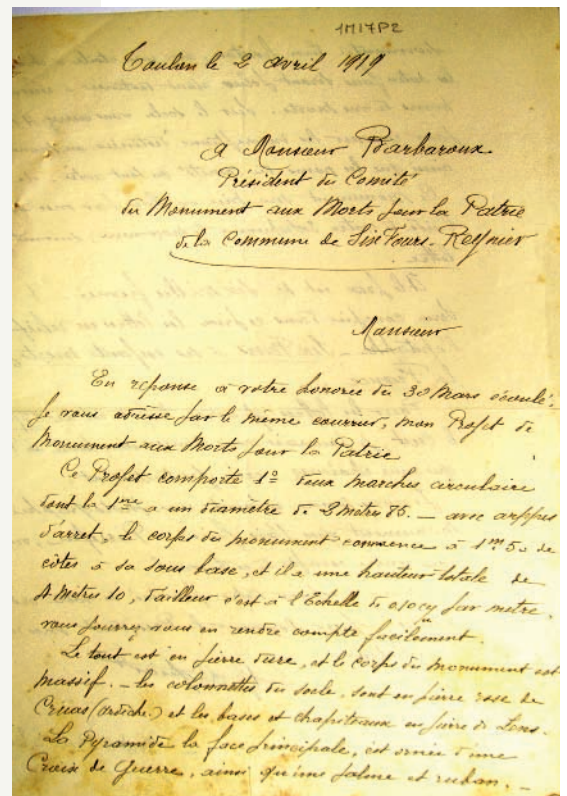 1M17P2
Toulon le 2 avril 1919
A Monsieur Barbaroux
Président du Comité
du Monument aux Morts pour la Patrie
de la Commune de Six Fours-Reynier
Monsieur
En réponse à votre honorée du 30 Mars écoulé,
Je vous adresse par le même courrier, mon Projet de
Monument aux Morts pour la Patrie
Ce Projet comporte 1º deux marches circulaire
dont la 1ère a un diamètre de 2 mètres 85. — avec
d'arret, le corps du monument commence à 1m50 de
côtés à sa sous base, et il a une hauteur totale de
4 Mètres 10, d'ailleur c'est à l'Echelle de par metre.
vous pourrez vous en rendre compte facilement.
Le tout est en pierre dure, et le corps du monument est
massif. — les colonnettes du socle, sont en pierre rose de
Cruas (ardèche.) et les bases et chapiteaux en pierre de Lens.
La Pyramide la face principale, est ornée d'une
Croix de Guerre, ainsi qu'une palme et ruban. —